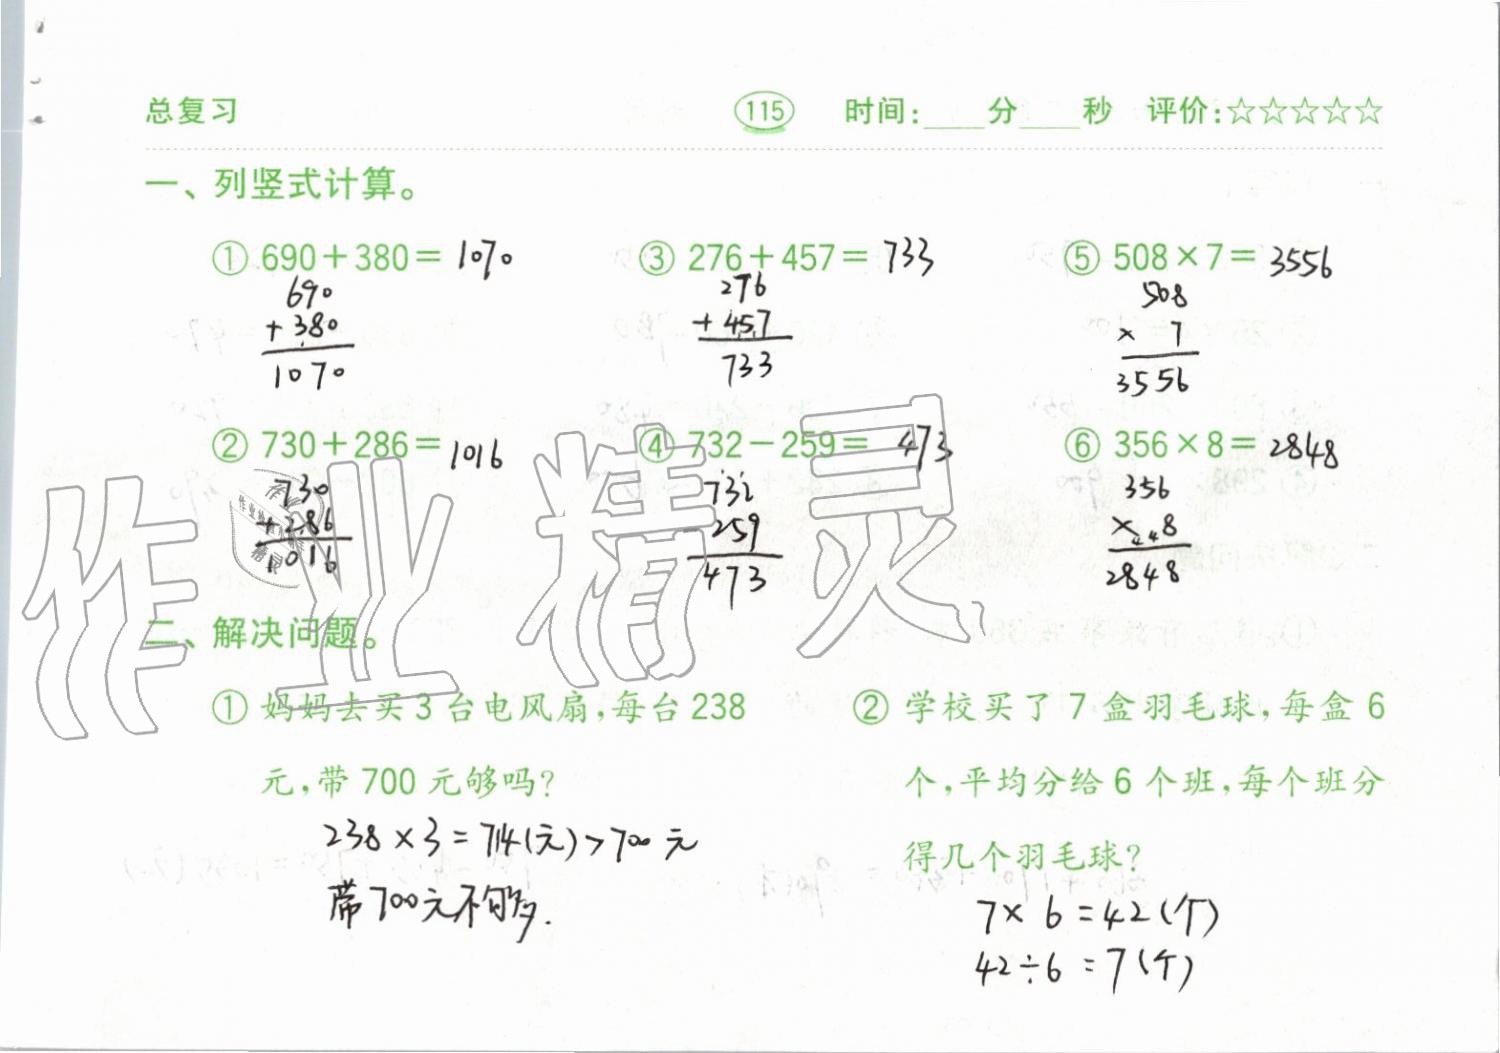 总复习 115 时间:____分____秒 评价:☆☆☆☆☆
一、列竖式计算。
① 690+380= 1070
690
+380
1070
③ 276+457= 733
276
+457
733
⑤ 508×7= 3556
508
× 7
3556
② 730+286= 1016
730
+286
1016
④ 732-259= 473
732
259
473
⑥ 356×8= 2848
356
×448
2848
二、解决问题。
① 妈妈去买3台电风扇,每台238
元,带700元够吗?
238×3=714(元)>700元
带700元不够.
② 学校买了7盒羽毛球,每盒6
个,平均分给6个班,每个班分
得几个羽毛球?
7×6=42(个)
42÷6=7(个)
作业精灵